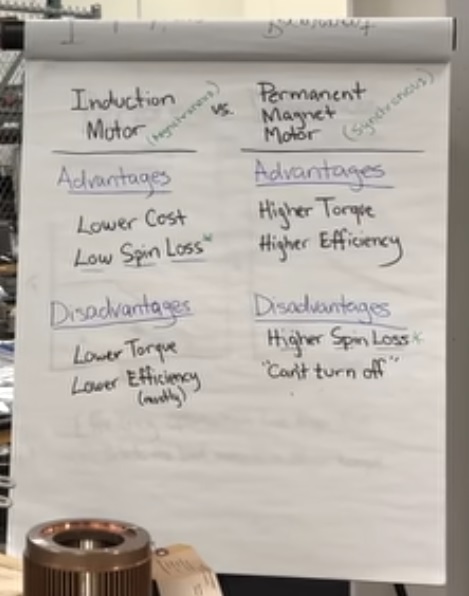 Induction
Motor (Asynchronous)
vs.
Permanent
Magnet
Motor (Synchronous)
Advantages
Lower Cost
Low Spin Loss*
Disadvantages
Lower Torque
Lower Efficiency
(mostly)
Advantages
Higher Torque
Higher Efficiency
Disadvantages
Higher Spin Loss*
"Can't turn off"